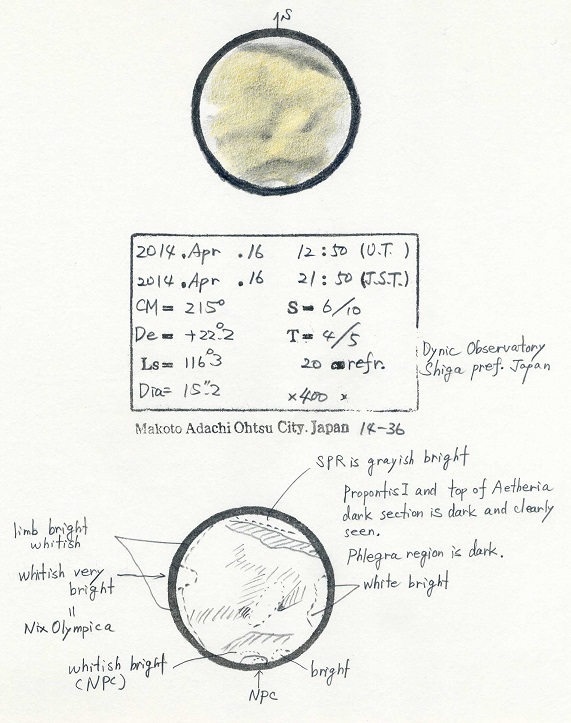 ↑S
2014.Apr .16 12:50 (U.T.)
2014.Apr .16 21:50 (J.S.T.)
CM= 215° S= 6/10
De= +22.°2 T= 4/5
Ls= 116.°3 20 cm refr.
Dia= 15."2 ×400 ×
Dynic Observatory
Shiga pref. Japan
Makoto Adachi Ohtsu City. Japan 14-36
SPR is grayish bright
Propontis I and top of Aetheria
dark section is dark and clearly
seen.
Phlegra region is dark.
limb bright
whitish
whitish very
bright
=
Nix Olympica
white bright
whitish bright
(NPC)
NPC
bright